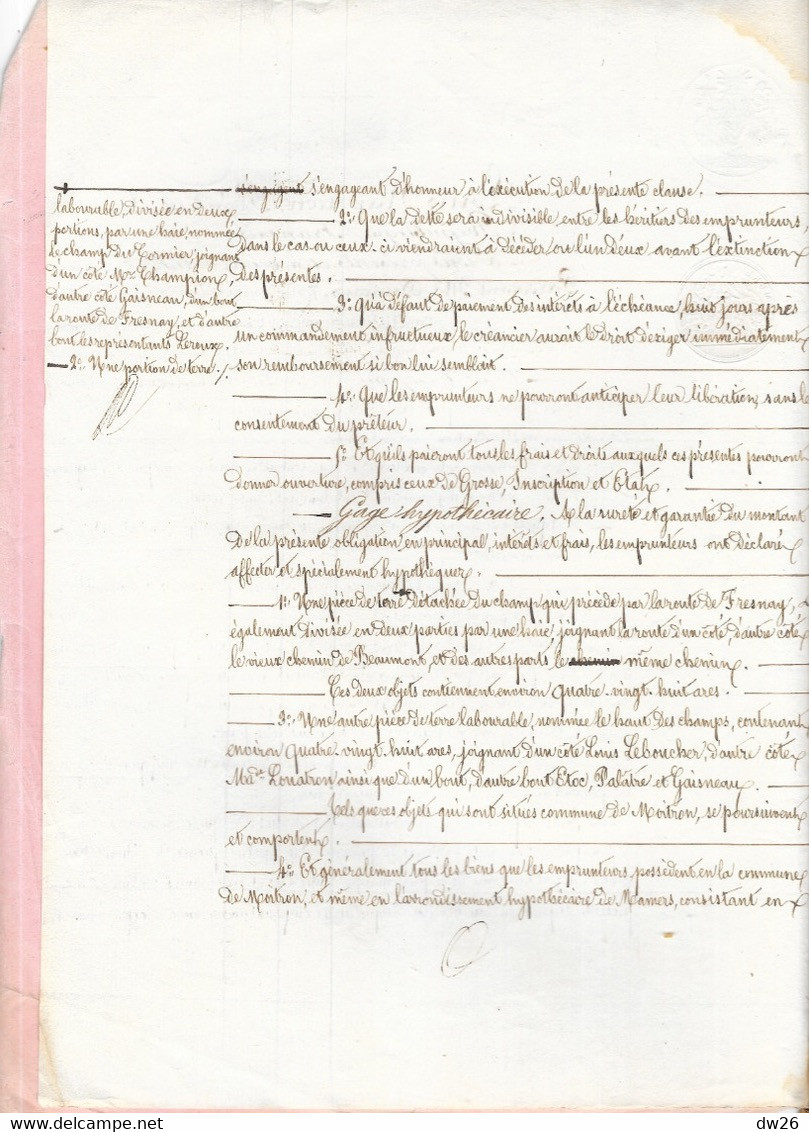 s'engageant d'honneur à l'exécution de la présente clause.
2º. Que la dette sera indivisible, entre les héritiers des emprunteurs,
dans le cas ou ceux-ci viendraient à décéder ou l'un deux avant l'extinction
des présentes.
3º. Qu'à défaut de paiement des intérêts à l'échéance, huit jours après
un commandement infructueux, le créancier aurait le droit d'exiger immédiatement
son remboursement si bon lui semblait.
4º. Que les emprunteurs ne pourront anticiper leur libération, sans le
consentement du prêteur.
5º. Et qu'ils paieront tous les frais et droits auxquels ces présentes pourront
donner ouverture, compris ceux de Grosse, Inscription et Etat.
Gage hypothécaire. A la sureté et garantie du montant
de la présente obligation, en principal, intérêts et frais, les emprunteurs ont déclaré
affecter et spécialement hypothéquer.
1º. Une pièce de terre
labourable, divisée en deux
portions, par une haie, nommée
le champ du Cormier, joignant
d'un côté Mr. Champion,
d'autre côté Gaisneau, d'un bout
la route de Fresnay, et d'autre
bout les représentants Leroux.
2º. Une portion de terre ./.
détachée du champ qui précède par la route de Fresnay,
également divisée en deux parties par une haie, joignant la route d'un côté, d'autre côté
le vieux chemin de Beaumont, et des autres parts le même chemin.
Ces deux objets contiennent environ quatre-vingt-huit ares.
3º. Une autre pièce de terre labourable, nommée le haut des champs, contenant
environ quatre-vingt-huit ares, joignant d'un côté Louis Leboucher, d'autre côté
Made. Louatron ainsi que d'un bout, d'autre bout Etoc, Palatre et Gaisneau.
Tels que ces objets qui sont situés commune de Moitron, se poursuivent
et comportent.
4º. Et généralement tous les biens que les emprunteurs, possèdent en la commune
de Moitron, et même en l'arrondissement hypothécaire de Mamers, consistant en
dw26